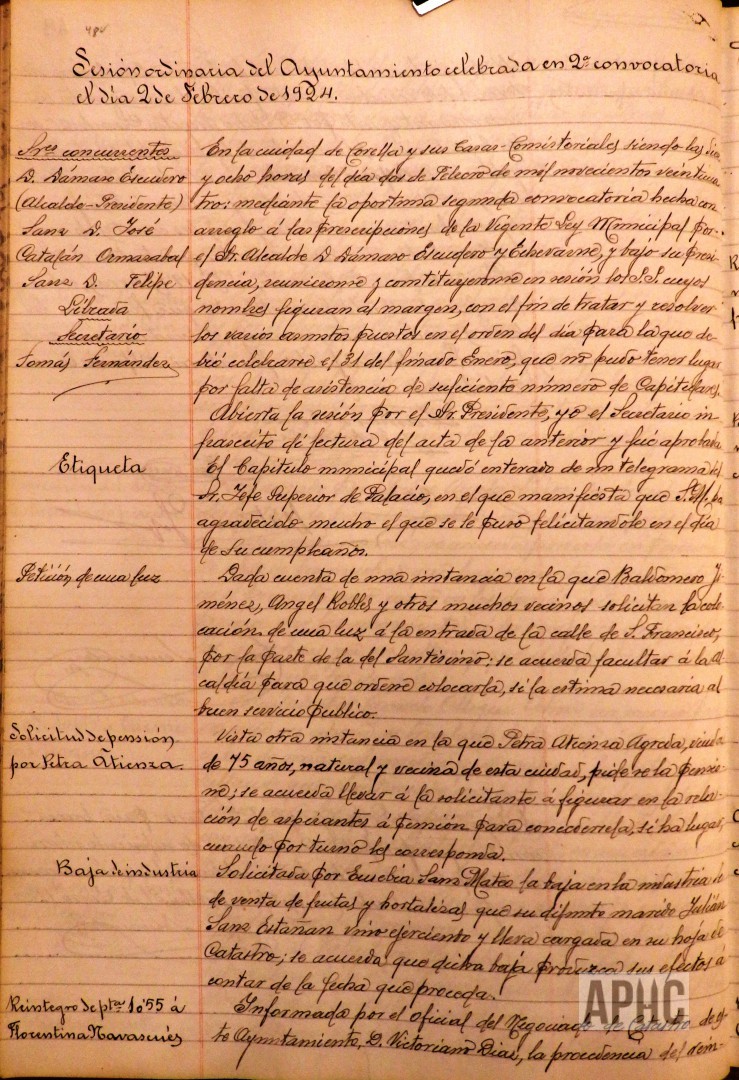 Sesión ordinaria del Ayuntamiento celebrada en 2ª convocatoria
el día 2 de Febrero de 1924.
Sres concurrentes
D. Dámaso Escudero
(Alcalde-Presidente)
Sanz D. José
Catalán Ormazabal
Sanz D. Felipe
Librada
Secretario
Tomás Fernández
En la ciudad de Corella y sus Casas-Comistoriales siendo las diez
y ocho horas del día dos de Febrero de mil novecientos veinticua
tro: mediante la oportuna segunda convocatoria hecha con
arreglo á las prescripciones de la Vigente Ley Municipal por
el Sr. Alcalde D. Dámaso Escudero y Echevarne, y bajo su presi-
dencia, reunieronse y constituyeronse en sesión los S.S. cuyos
nombres figuran al margen, con el fin de tratar y resolver
los varios asuntos puestos en el orden del día para la que de-
bió celebrarse el 31 del finado Enero, que no pudo tener lugar
por falta de asistencia de suficiente número de Capitulares.
Abierta la sesión por el Sr. Presidente, yo el Secretario in-
frascrito dí lectura del acta de la anterior y fué aprobada
Etiqueta
El Capítulo municipal quedó enterado de un telegrama del
Sr. Jefe Superior de Palacio, en el que manifiesta que S. M. ha
agradecido mucho el que se le puso felicitandole en el día
de su cumpleaños.
Petición de una luz
Dada cuenta de una instancia en la que Baldomero Ji-
ménez, Angel Robles y otros muchos vecinos solicitan la colo-
cación de una luz á la entrada de la calle de S. Francisco,
por la parte de la del Santísimo: se acuerda facultar á la Al
caldía para que ordene colocarla, si la estima necesaria al
buen servicio público.
Solicitud de pensión
por Petra Atienza.
Vista otra instancia en la que Petra Atienza Agreda, viuda
de 75 años, natural y vecina de esta ciudad, pide se la pensio-
ne; se acuerda llevar á la solicitante á figurar en la rela-
ción de aspirantes á pensión para concederrela, si ha lugar,
cuando por turno les corresponda.
Baja de industria
Solicitada por Eusebia Sanz Mateo la baja en la industria
de venta de frutas y hortalizas que su difunto marido Julián
Sanz Estañan vino ejerciento y lleva cargada en su hoja de
Catastro; se acuerda que dicha baja produzca sus efectos á
contar de la fecha que proceda.
Reintegro de ptas 10'55 á
Florentina Navascués
Informado por el Oficial del Negociado de Catastro de es-
te Ayuntamiento, D. Victoriano Diaz, la procedencia del rein-
APHC